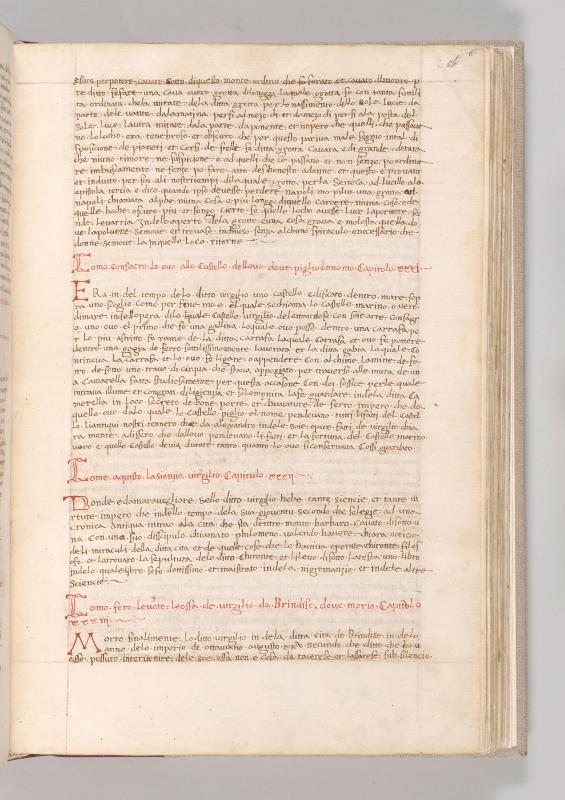 et cavato il monte, p
re ditto se fare una cava overo grotta di longeza. la quale grotta fo con tanta suttili
ta ordinata che la mitate de la ditta grotta per lo nassimento dello sole Luce da
parte de levante dala matina persi ad nezo di et da nezo di persi ala posta del
sole. Luce laltra mitate dala parte da ponente. et impero che quelli che passavа
no. lo locho era tenebroso et obscuro che per questo pariva male segno intal di
sposicione de pianeti et corsi de stelle fo ditta grotta Cavata e di grande dotata
che niuno timore ne suspicione e ad quelli che ce passano et non senze po ordina
re imbuscamento ne senze po fare atto deshonesto adonne et questo e provato
et induttо per sin ali nostri tempi. dila quale grotta per lo Seneca ad lucillo ala
epistola tercia e dice quando ipso devesse perdere napoli una grotta ad
napoli chiamata niuna cosa e piu longe di quello carcere niuna cosa e de
quelle boche obscuro piu et longo
inde lo aperto dela grotta e una cosa grave e molesta quella do
ve la polvere se move et trovase incluso senza alchuno spiraculo e necessario che
donne se move La in quello Loco ritorne
Como consacro lo ovo allo Castello dellovo dove piglio lo nomo Capitolo xxxi
ERa in del tempo de lo ditto virgilio uno castello edificato dentro mare sop
ra uno scoglio Come per fine mo e el quale se chiama lo Castello marino o vero
di mare in dell opera dilo quale Castello virgilio delettandose con soie arte consag
ro uno ovo el primo che fe una gallina. Lo quale ovo posse dentro una carrafa pe
r lo piu astritto forame de la ditta carrafa La quale Carrafa et ovo fe ponere
dentro una gagia de ferro sottilissimamente lavorata et la ditta gabia La quale Co
ntineva La carrafa et lo ovo fe ligare o appendere Con alchune Lamine de fe
rro de sotto uno travo di cerqua che stava appogiato per traverso alle mura de un
a Camarella fatta studiosamente per questa accasone Con doi fossice per le quale
intrava illume et con gran diligenzia et solempnita La fe guardare in dela ditta Ca
merella in Loco secreto de bone porte et chiavature de ferro impero che da
quello ovo dalo quale lo Castello piglio el nome pendevano tutti li fatti del Castel
lo Li antiqui nostri tennero che da alexandro in dele soie opere fatti de virgilio chia
ra mente adissero che dall ovo pendevano li fatti et la fortuna del Castello marino
vero e quello Castello devia durare tanto quanto lo ovo si conservava Cossi guardato
Como aquisto La sienzia virgilio Capitulo xxxii
Donde e da maravegliare se llo ditto virgilio hebe tante siencie et tante vi
rtute impero che in dello tempo dela sua gioventu secondo che se lege ad una
Cronica Antiqua intrao ala cita che sta dentro monte barbaro Cavato di sotto u
na Con uno suo discipulo chiamato philomeno volendo havere chiara noticia
deli miraculi della ditta cita et de quelle cose che le haviva operate chironte filos
ofo et la trovaro la sepultura delo ditto Chironte et li levo disotto La testa uno libro
in delo quale libro se fo dottissimo et maistrato in dela nigromanzia et in dele altre
Sciencie
Como foro Levate Le ossa de virgilio da Brindise dove morio Capitolo
xxxiii
Morto finalmente Lo ditto virgilio in dela ditta cita de Brindise in delo
anno delo imperio de ottaviano augusto xxv secundo che ditto che
esse possuto intervenire dele soe ossa non e cosa da tacerese et lassarese sub silencio